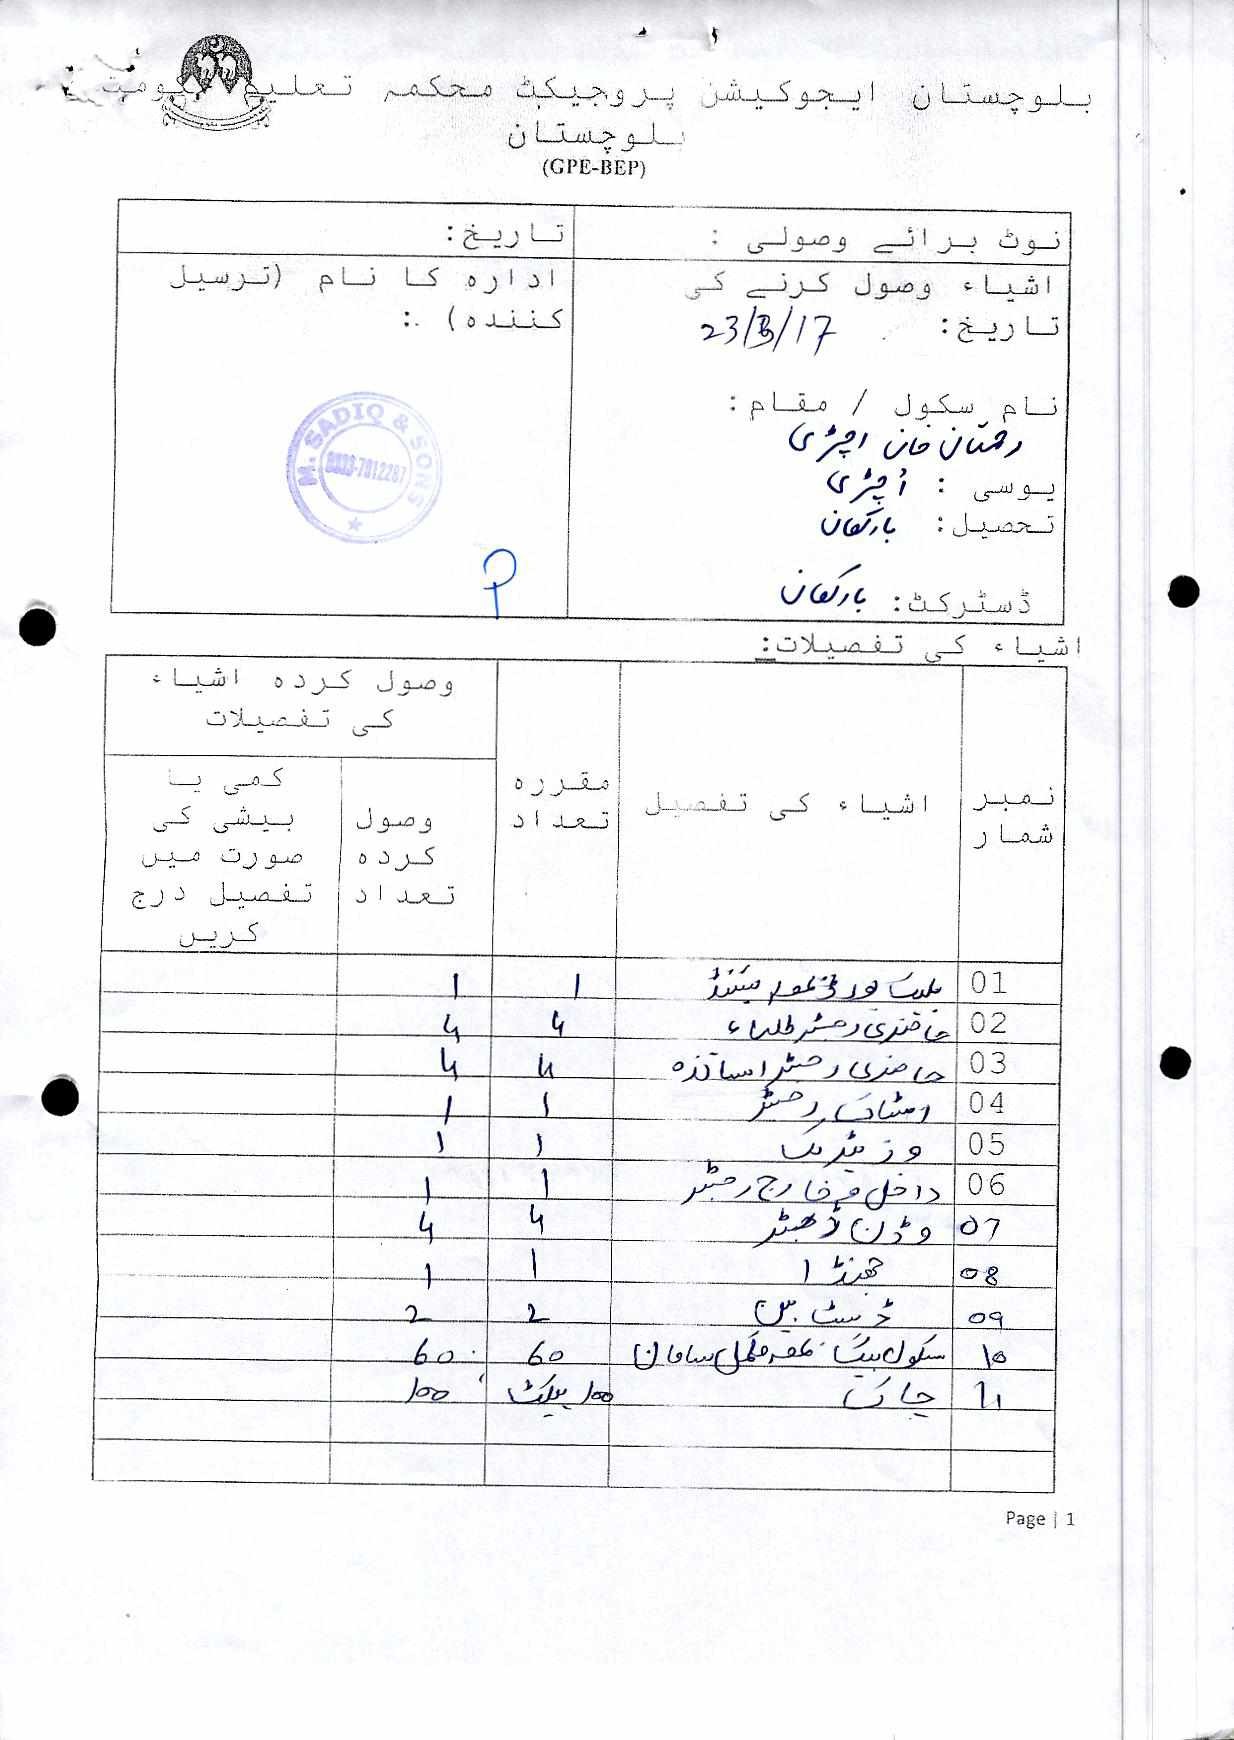 بلوچستان ایجوکیشن پروجیکٹ محکمہ تعلیم حکومت
بلوچستان
(GPE-BEP)
نوٹ برائے وصولی :
تاریخ:
اشیاء وصول کرنے کی
تاریخ: 23/3/17
نام سکول / مقام:
خان اچڑی
یوسی : اُچڑی
تحصیل: بارکھان
ڈسٹرکٹ: بارکھان
ادارہ کا نام (ترسیل
کنندہ) :
M. SADIQ & SONS
0333-7012287
اشیاء کی تفصیلات:
نمبر شمار
اشیاء کی تفصیل
مقررہ تعداد
وصول کردہ اشیاء
کی تفصیلات
وصول کردہ تعداد
کمی یا بیشی کی صورت میں تفصیل درج کریں
01 بلیک بورڈ بمعہ سٹینڈ 1 1
02 حاضری رجسٹر طلباء 4 4
03 حاضری رجسٹر اساتذہ 4 4
04 اسٹاک رجسٹر 1 1
05 وزیٹر بک 1 1
06 داخل و خارج رجسٹر 1 1
07 وڈن ڈسٹر 4 4
08 جھنڈا 1 1
09 ڈسٹ بین 2 2
10 سکول بیگ بمعہ مکمل سامان 60 60
11 چاک 100 پیکٹ 100
Page | 1